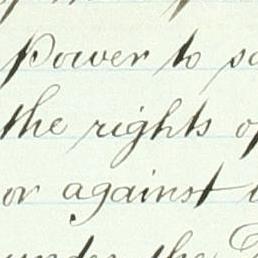 Power to
the rights
or against
under the